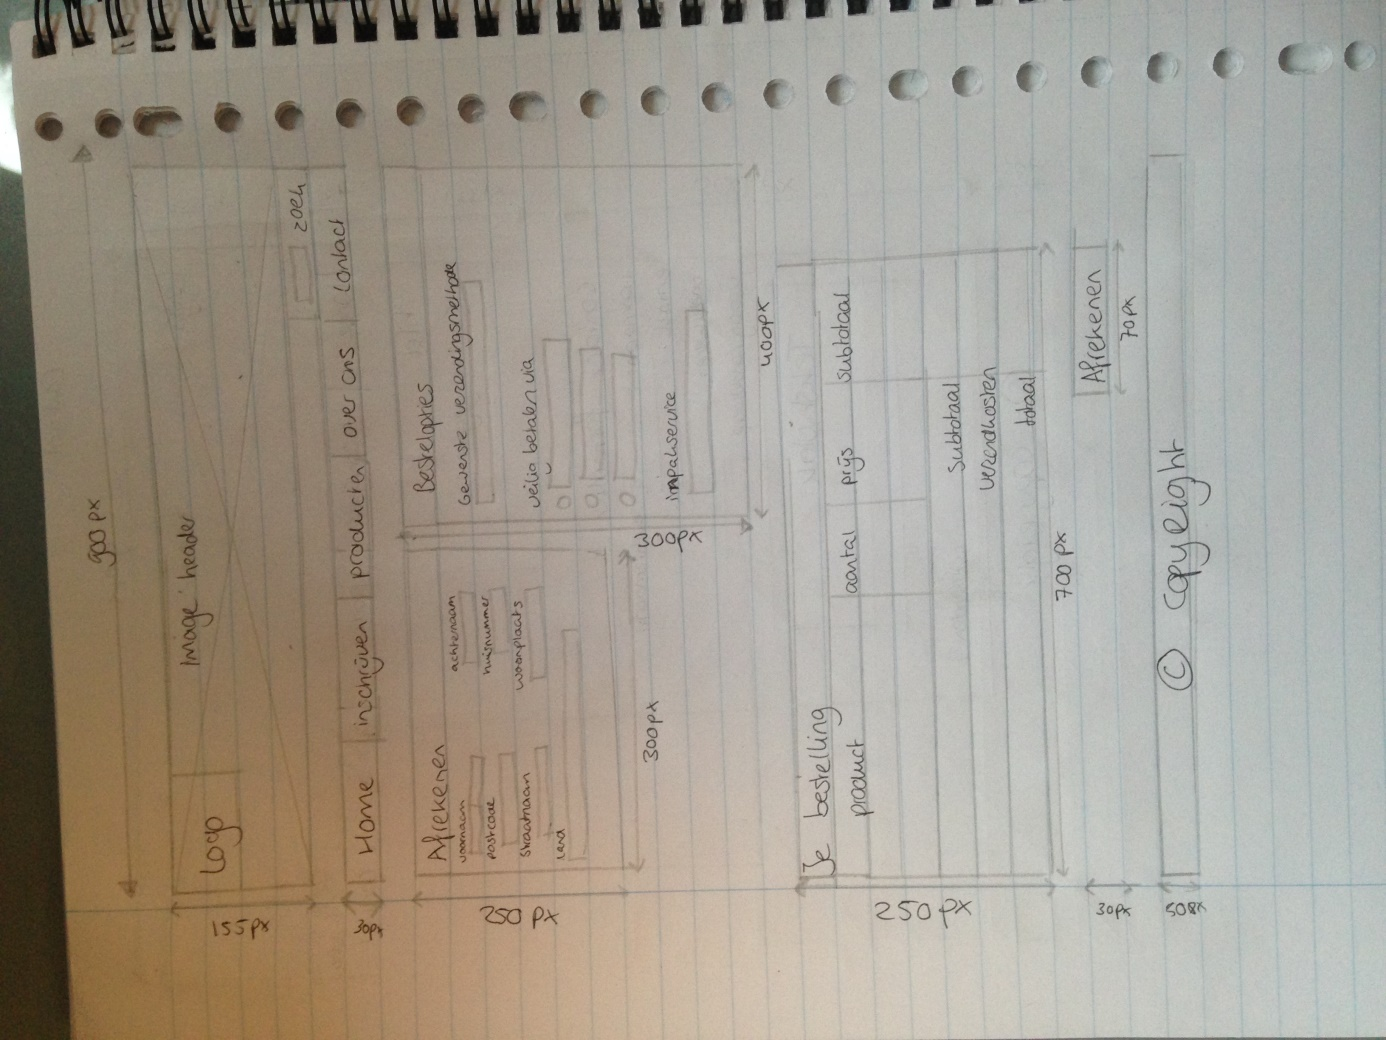 900 px
Image header
Logo
155px
zoek
Home inschrijven producten over ons contact
30px
Afrekenen
voornaam achternaam
postcode huisnummer
straatnaam woonplaats
land
250 px
300px
Bestelopties
Gewenste verzendingsmethode
veilig betalen via
inpakservice
300px
400px
Je bestelling
product aantal prijs subtotaal
Subtotaal
verzendkosten
totaal
250 px
700 px
Afrekenen
30px
70 px
© copyright
50px